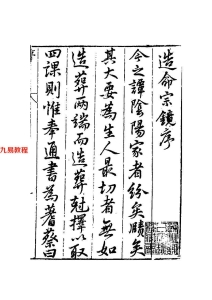 造命宗鏡序
今之譚陰陽家者紛矣賾矣
其大要為生人最切者無如
造葬兩端而造葬尅擇以取
四課則惟奉通書為蓍蔡曰
九易教程